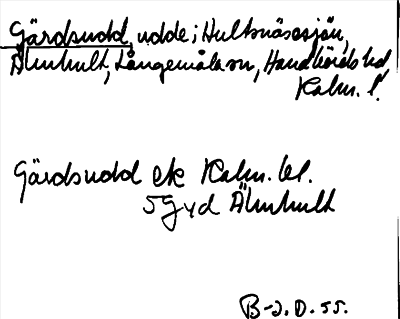 Gärdsudd, udde i Hultsnäsesjön,
Älmhult, Långemåla sn, Handbörds hd
Kalm. l.
Gärdsudd ek Kalm. bl.
5g yd Älmhult
B-J.D. 55.